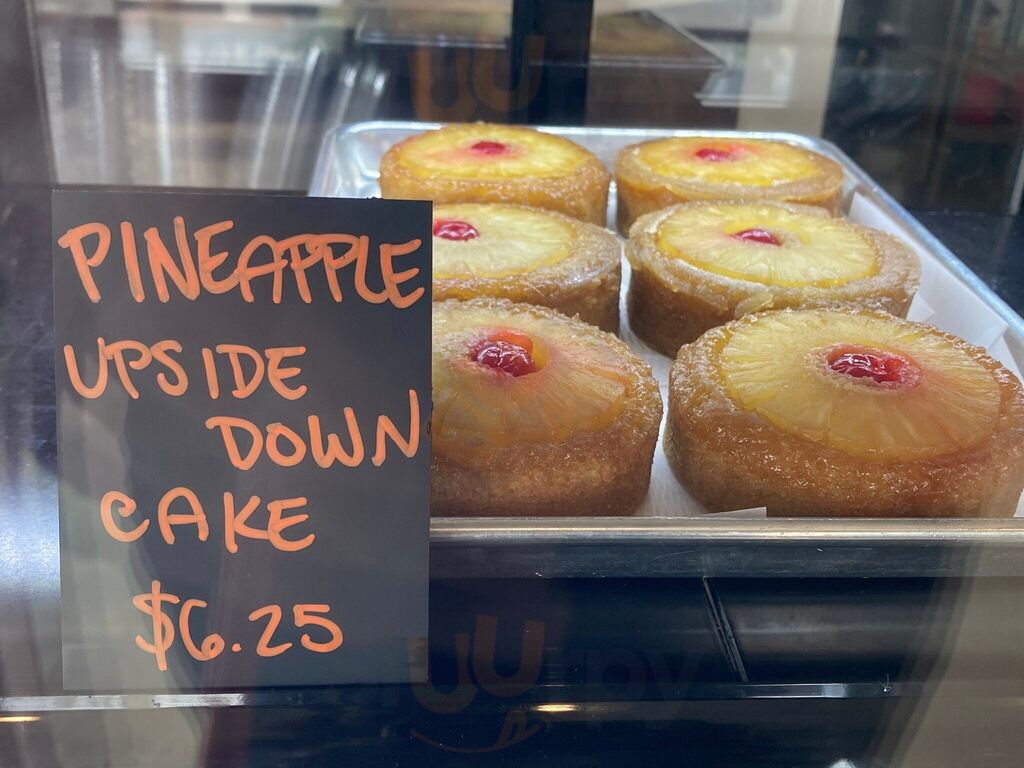 PINEAPPLE
UPSIDE
DOWN
CAKE
$6.25